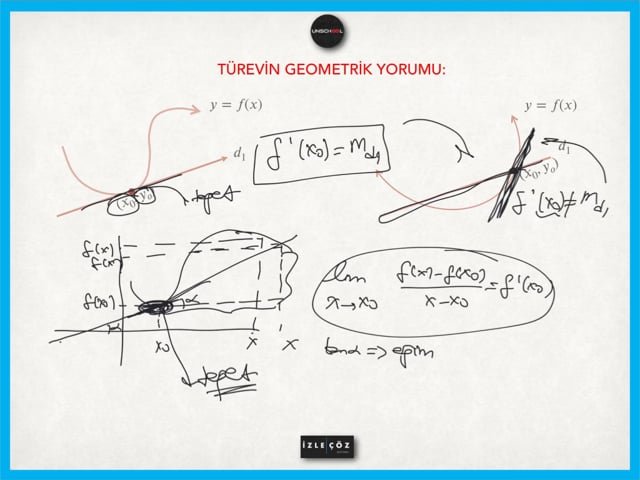 UNSCHOOL
TÜREVİN GEOMETRİK YORUMU:
y = f(x)
d₁
(x₀, y₀)
teğet
f'(x₀) = m_d₁
y = f(x)
d₁
(x₀, y₀)
f'(x₀) ≠ m_d₁
f(x)
f(x)
f(x₀)
α
α
x₀
x
x
teğet
lim x→x₀ f(x)-f(x₀) / x-x₀ = f'(x₀)
tanα => eğim
İZLE ÇÖZ